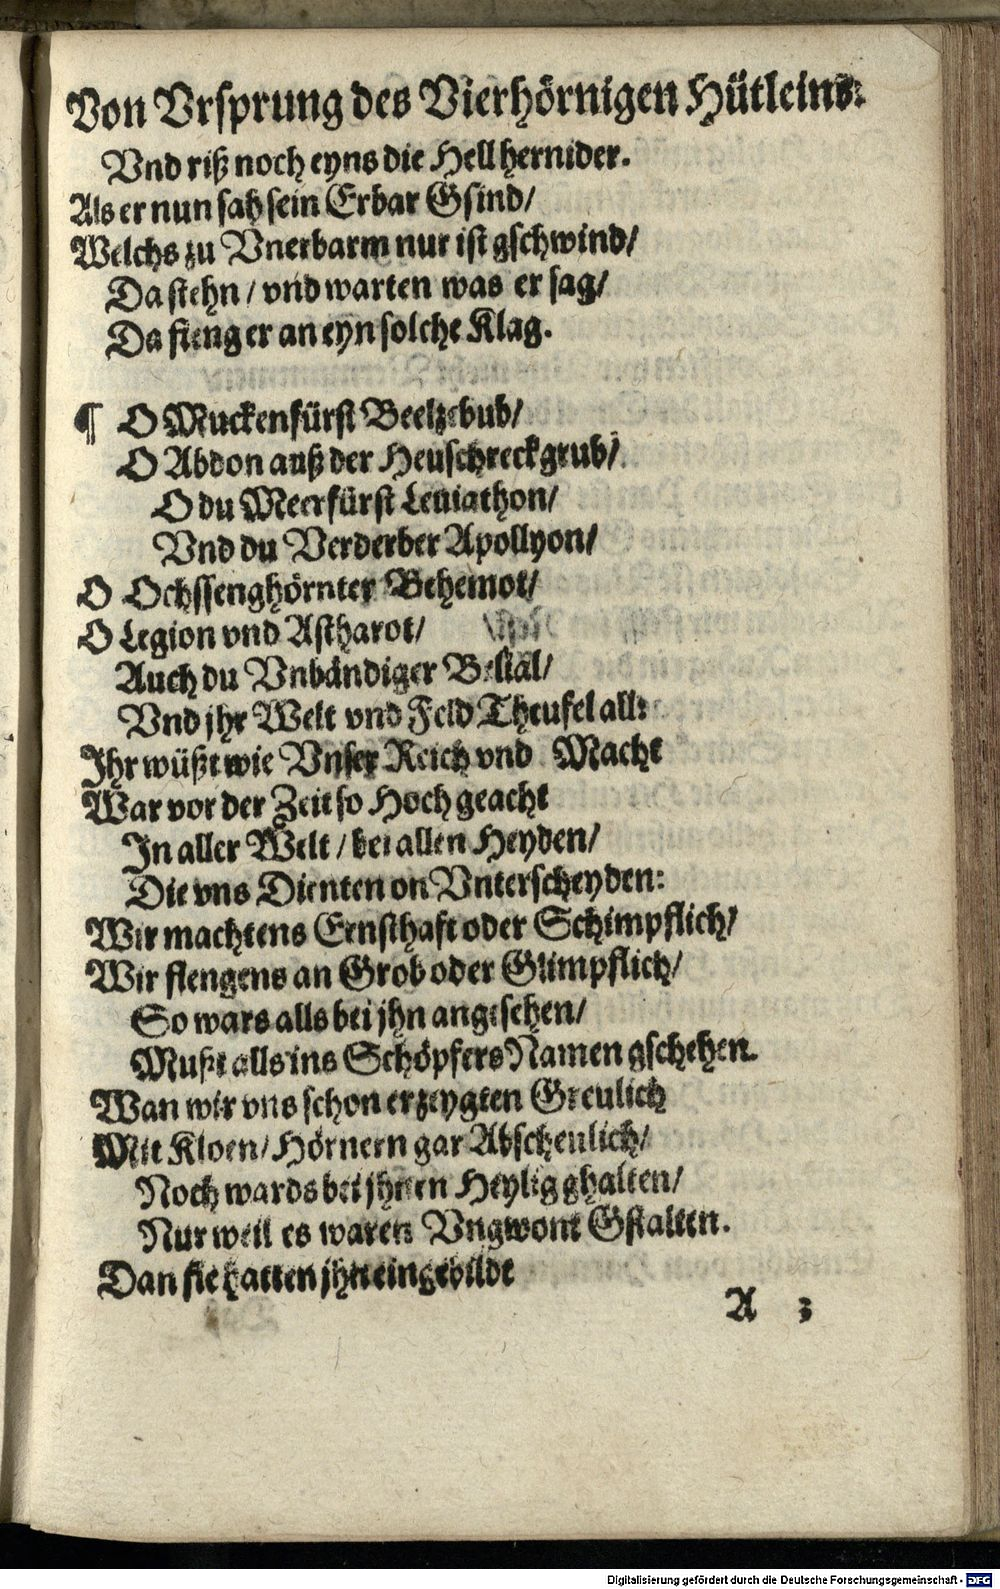 Von Vrsprung des Vierhörnigen Hütleins.
Vnd riß noch eyns die Hell hernider.
Als er nun sah sein Erbar Gsind/
Welchs zu Vnerbarm nur ist gschwind/
Da stehn / vnd warten was er sag/
Da fieng er an eyn solche Klag.
¶ O Muckenfürst Beelzebub/
O Abdon auß der Heuschreckgrub/
O du Meerfürst Leuiathon/
Vnd du Verderber Apollyon/
O Ochssenghörnter Behemot/
O Legion vnd Astharot/
Auch du Vnbändiger Belial/
Vnd jhr Welt vnd Feld Theufel all:
Ihr wüßt wie Vnser Reich vnd Macht
War vor der Zeit so Hoch geacht
In aller Welt / bei allen Heyden/
Die vns Dienten on Vnterscheyden:
Wir machtens Ernsthaft oder Schimpflich/
Wir fiengens an Grob oder Glimpflich/
So wars alls bei jhn angesehen/
Mußt alls ins Schöpfers Namen gschehen.
Wan wir vns schon erzeygten Greulich
Mit Kloen/ Hörnern gar Abscheulich/
Noch wards bei jhnen Heylig ghalten/
Nur weil es waren Vngwont Gstalten.
Dan sie hatten jhn eingebildt
A 3
Digitalisierung gefördert durch die Deutsche Forschungsgemeinschaft - DFG